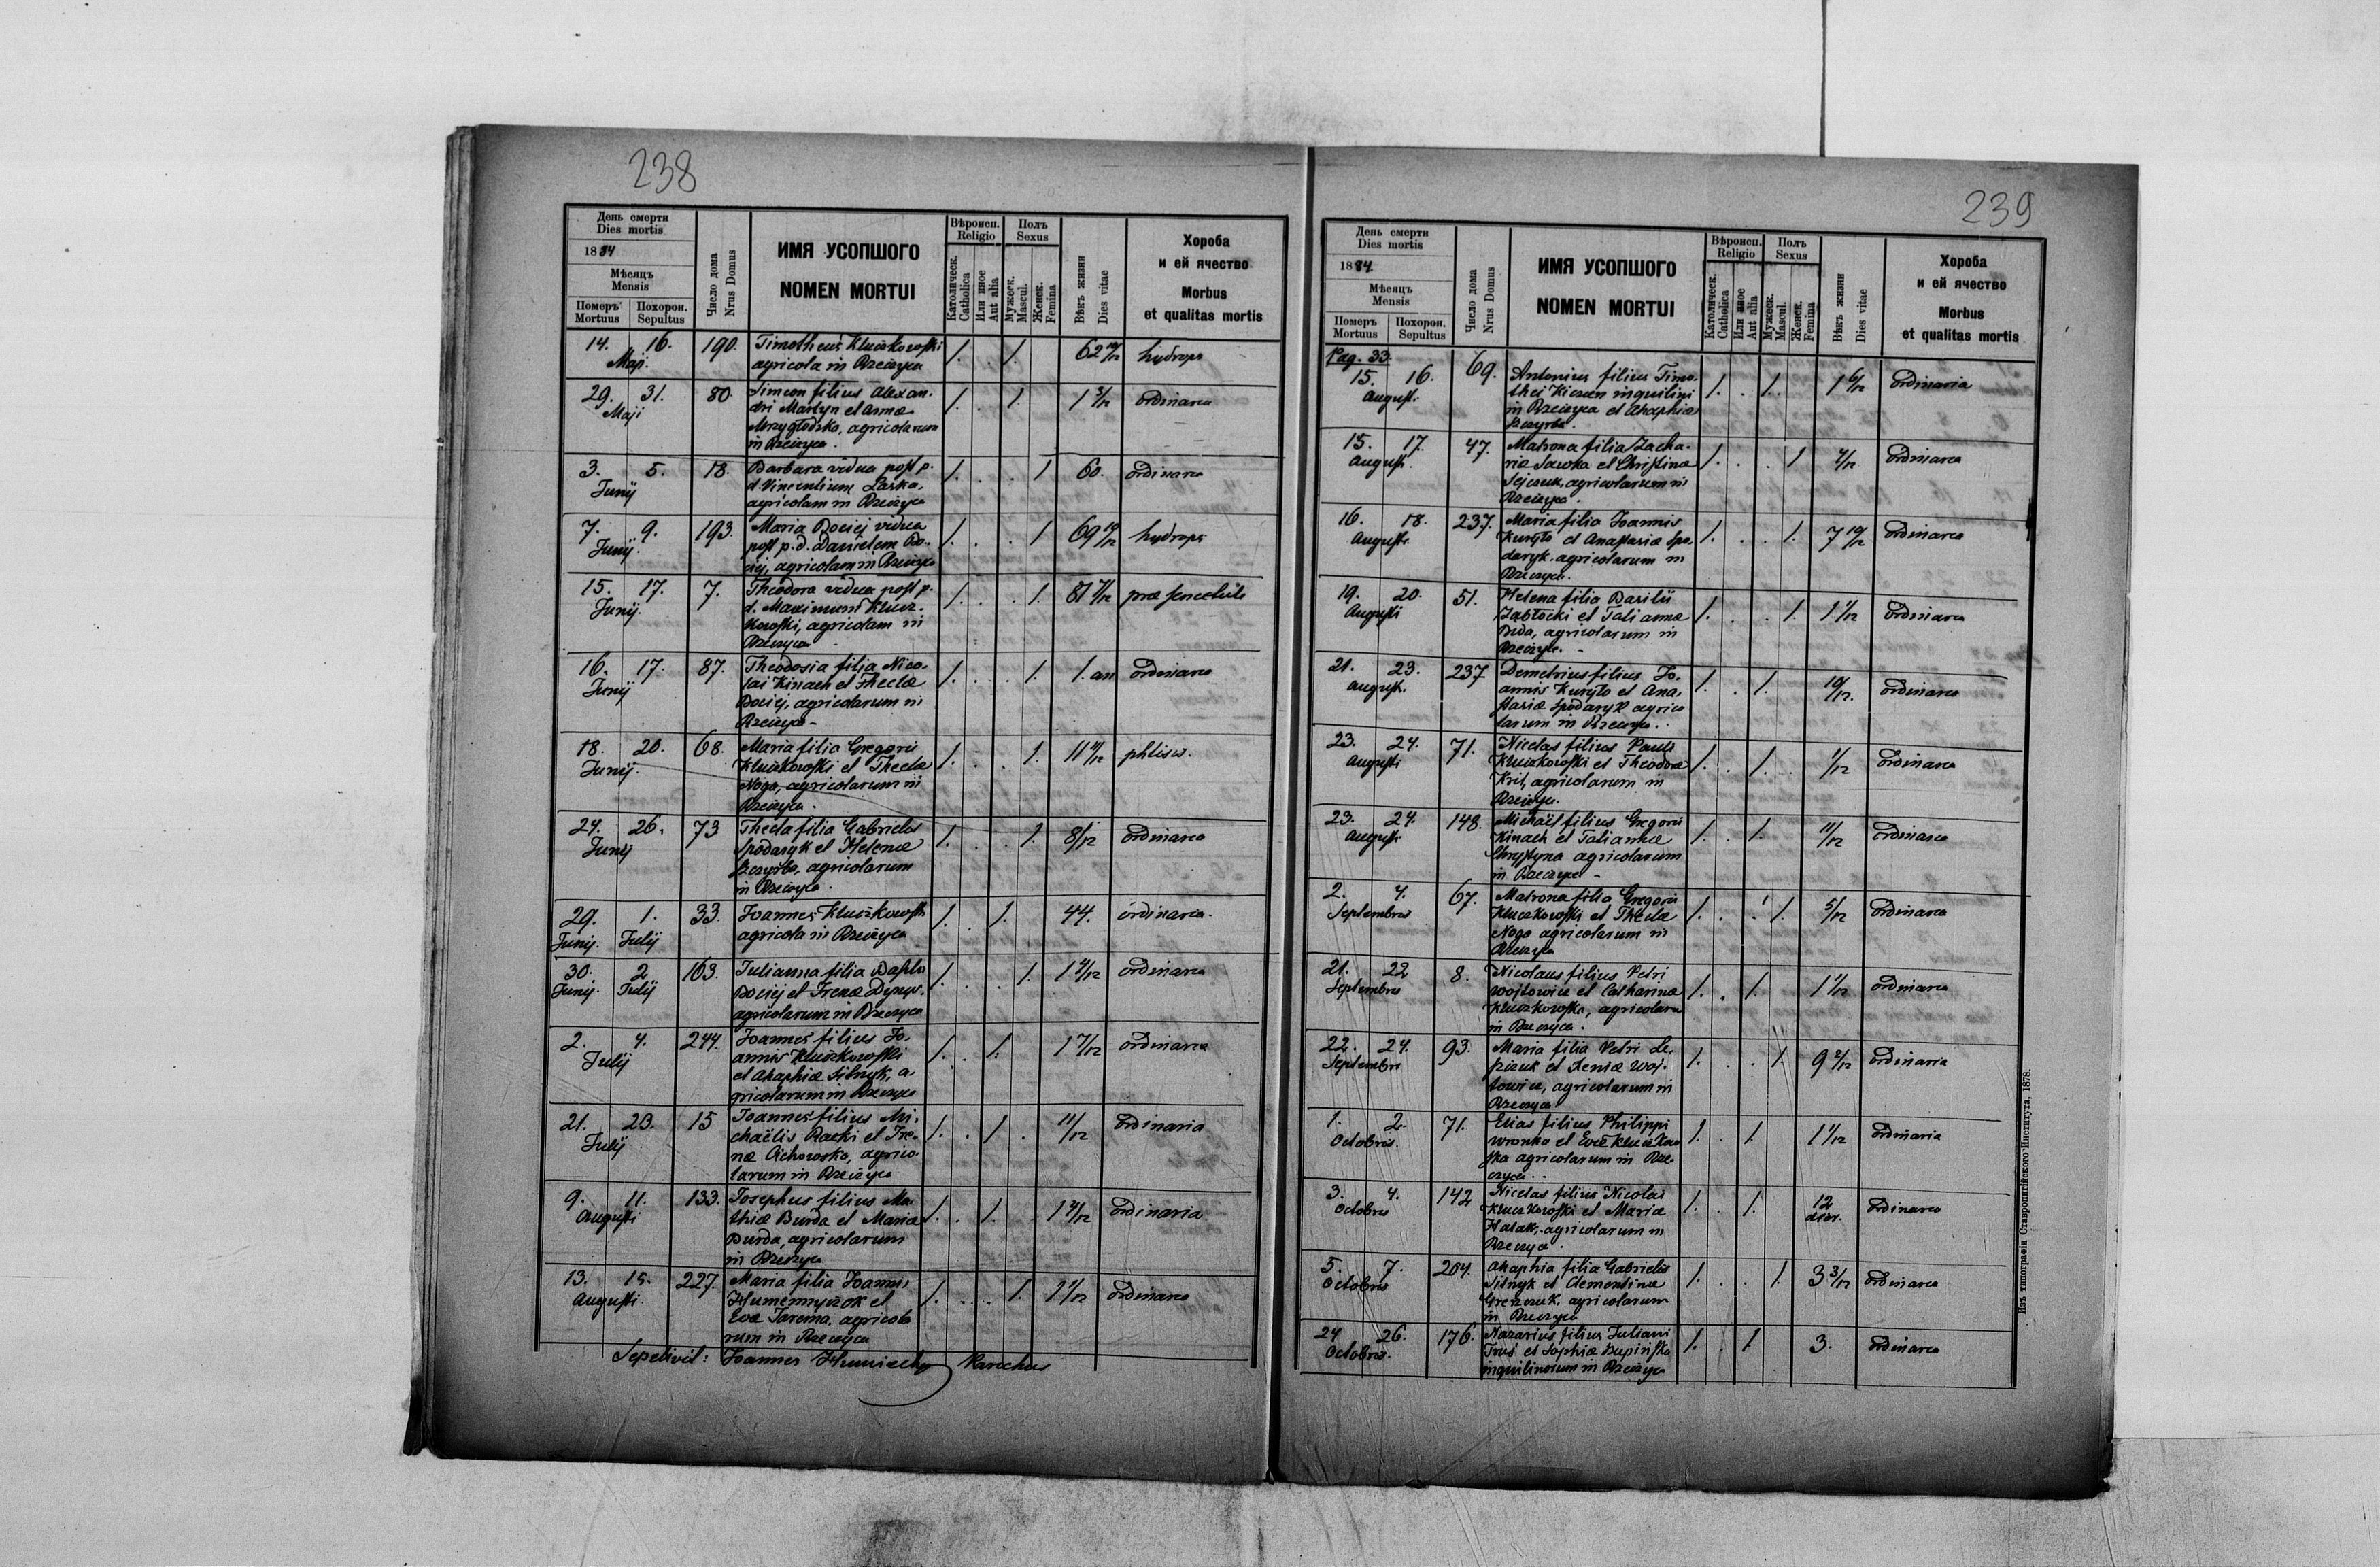 238
День смерти
Dies mortis
1884
Мѣсяцъ
Mensis
Померъ Похорон.
Mortuus Sepultus
Число дома
Nrus Domus
ИМЯ УСОПШОГО
NOMEN MORTUI
Вѣроисп.
Religio
Католическ.
Catholica
Или иное
Aut alia
Полъ
Sexus
Мужеск.
Mascul.
Женск.
Femina
Вѣкъ жизни
Dies vitae
Хороба
и ей ячество
Morbus
et qualitas mortis
14. 16. 190. Timotheus Kluczkowski 1. . 1. 62 10/12 hydrops
Maji. agricola in Rzeczyca
29. 31. 80. Simeon filius Alexan-
Maji dri Martyn et Annæ 1. . 1. 1 3/12 ordinaria
Mrzygłodzka, agricolarum
in Rzeczyca.
3. 5. 18. Barbara vidua post p. 1. . . 1 60. ordinaria
Junij d. Vincentium Laska,
agricolam in Rzeczyca
7. 9. 193. Maria Bociej vidua 1. . . 1 69 10/12 hydrops
Junij. post p. d. Danielem Bo-
ciej, agricolam in Rzeczyca
15. 17. 7. Theodora vidua post p. 1. . . 1. præ senectute
Junij. d. Maximum Klucz-
kowski, agricolam in
Rzeczyca
16. 17. 87. Theodosia filia Nico- 1. . . 1. 1. an ordinaria
Junij lai Kinach et Theclæ
Bociej, agricolarum in
Rzeczyca
18. 20. 68. Maria filia Gregorii 1. . . 1. 11 phtisis.
Junij. Kluczkowski et Theclæ
Noga, agricolarum in
Rzeczyca.
24. 26. 73 Thecla filia Gabrielis 1. . . 1. 8/12 ordinaria
Junij Spodaryk et Helenæ
Szczyrba, agricolarum
in Rzeczyca.
29. 1. 33. Joannes Kluczkowski 1. . 1. 44. ordinaria.
Junij. Julij agricola in Rzeczyca
30. 2. 163. Julianna filia Basilii 1. . . 1. 1 4/12 ordinaria
Junij. Julij Bociej et Irenæ
agricolarum in Rzeczyca
2. 4. 244. Joannes filius Jo- 1. . 1. 1 7/12 ordinaria
Julij annis Kluczkowski
et Ahaphiæ Sitnyk, a-
gricolarum in Rzeczyca
21. 23. 15 Joannes filius Mi- 1. . 1. 11/12 ordinaria
Julij chaëlis Racki et Ire-
næ Cichowska, agrico-
larum in Rzeczyca
9. 11. 133. Josephus filius Ma- 1. . 1. ordinaria
Augusti thiæ Burda et Mariæ
Burda, agricolarum
in Rzeczyca
13. 15. 227. Maria filia Joannis 1. . . 1. 1 1/12 ordinaria
Augusti. Humennyczok et
Evæ Jarema, agricola
rum in Rzeczyca
Sepelivit: Joannes Humiecky Parochus
239
День смерти
Dies mortis
1884.
Мѣсяцъ
Mensis
Померъ Похорон.
Mortuus Sepultus
Число дома
Nrus Domus
ИМЯ УСОПШОГО
NOMEN MORTUI
Вѣроисп.
Religio
Католическ.
Catholica
Или иное
Aut alia
Полъ
Sexus
Мужеск.
Mascul.
Женск.
Femina
Вѣкъ жизни
Dies vitae
Хороба
и ей ячество
Morbus
et qualitas mortis
Pag. 33.
15. 16. 69. Antonius filius Timo- 1. . 1. 1 6/12 ordinaria
Augusti thei inquilini
in Rzeczyca et Ahaphiæ
Szczyrba.
15. 17. 47. Matrona filia Zacha- 1. . . 1 ordinaria
Augusti. riæ Sawka et Christinæ
agricolarum in
Rzeczyca.
16. 18. 237. Maria filia Joannis 1. . . 1. 7 10/12 ordinaria
Augusti. Kuryło et Anastasiæ Spo-
daryk, agricolarum in
Rzeczyca.
19. 20. 51. Helena filia Basilii 1. . . 1. 1 1/12 ordinaria
Augusti Zabłocki et Tatiannæ
agricolarum in
Rzeczyca.
21. 23. 237 Demetrius filius Jo- 1. . 1. 10/12. ordinaria
Augusti. annis Kuryło et Ana-
stasiæ Spodaryk agrico
larum in Rzeczyca.
23. 24. 71. Nicetas filius Pauli 1. . 1. 1/12 ordinaria
Augusti Kluczkowski et Theodoræ
Kril, agricolarum in
Rzeczyca.
23. 24. 148. Michaël filius Gregorii 1. . 1. 11/12 ordinaria
Augusti Kinach et Tatiannæ
Chrystyna agricolarum
in Rzeczyca
2. 4. 67. Matrona filia Gregorii 1. . . 1. 5/12 ordinaria
Septembris Kluczkowski et Theclæ
Noga agricolarum in
Rzeczyca
21. 22 8. Nicolaus filius Petri 1. . 1. 1 1/12 ordinaria
Septembris Wojtowicz et Catharinæ
Kluczkowska, agricolaru
in Rzeczyca.
22. 24. 93. Maria filia Petri Le- 1. . . 1. 9 2/12 ordinaria
Septembris et Xeniæ Woj-
towicz, agricolarum in
Rzeczyca
1. 2. 71. Elias filius Philippi 1. . 1. 1 1/12 ordinaria
Octobris. Wronka et Evæ Kluczkow
ska agricolarum in Rze-
czyca.
3. 4. 142 Nicetas filius Nicolai 1. . 1. 12 dier. ordinaria
Octobris Kluczkowski et Mariæ
Hatak, agricolarum in
Rzeczyca.
5. 7. 204. Ahaphia filia Gabrielis 1. . . 1. 3 3/12 ordinaria
Octobris Sitnyk et Clementinæ
agricolarum
in Rzeczyca
24 26. 176. Nazarius filius Juliani 1. . 1. 3. ordinaria
Octobris. et Sophiæ
inquilinorum in Rzeczyca
Изъ типографіи Ставропигійского Института, 1878.